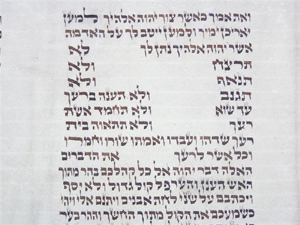 ואת אמך כאשר צוך יהוה אלהיך למען
יאריכן ימיך ולמען ייטב לך על האדמה
אשר יהוה אלהיך נתן לך לא
תרצח ולא
תנאף ולא
תגנב ולא תענה ברעך
עד שוא ולא תחמד אשת
רעך ולא תתאוה בית
רעך שדהו ועבדו ואמתו שורו וחמרו
וכל אשר לרעך את הדברים
האלה דבר יהוה אל כל קהלכם בהר מתוך
האש הענן והערפל קול גדול ולא יסף
ויכתבם על שני לחת אבנים ויתנם אלי ויהי
כשמעכם את הקול מתוך החשך וההר בער